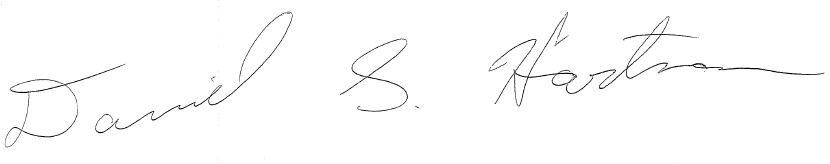 Daniel S. Hartman